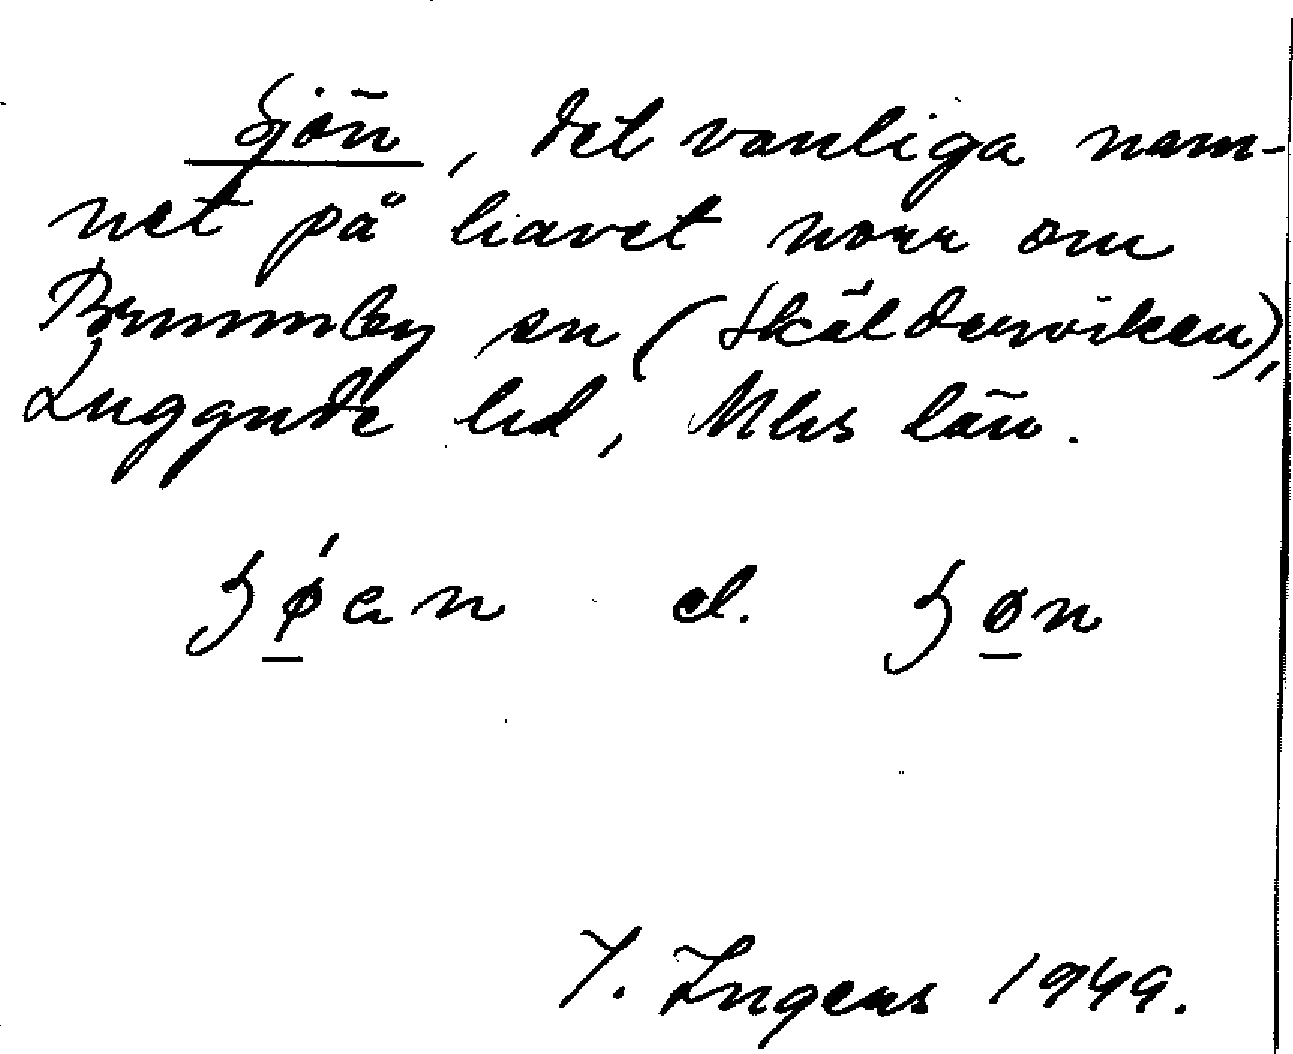 Sjön, det vanliga nam-
net på havet norr om
Brunnby sn (Skälderviken),
Luggude hd, Mlhs län.
el.
I. Ingers 1949.